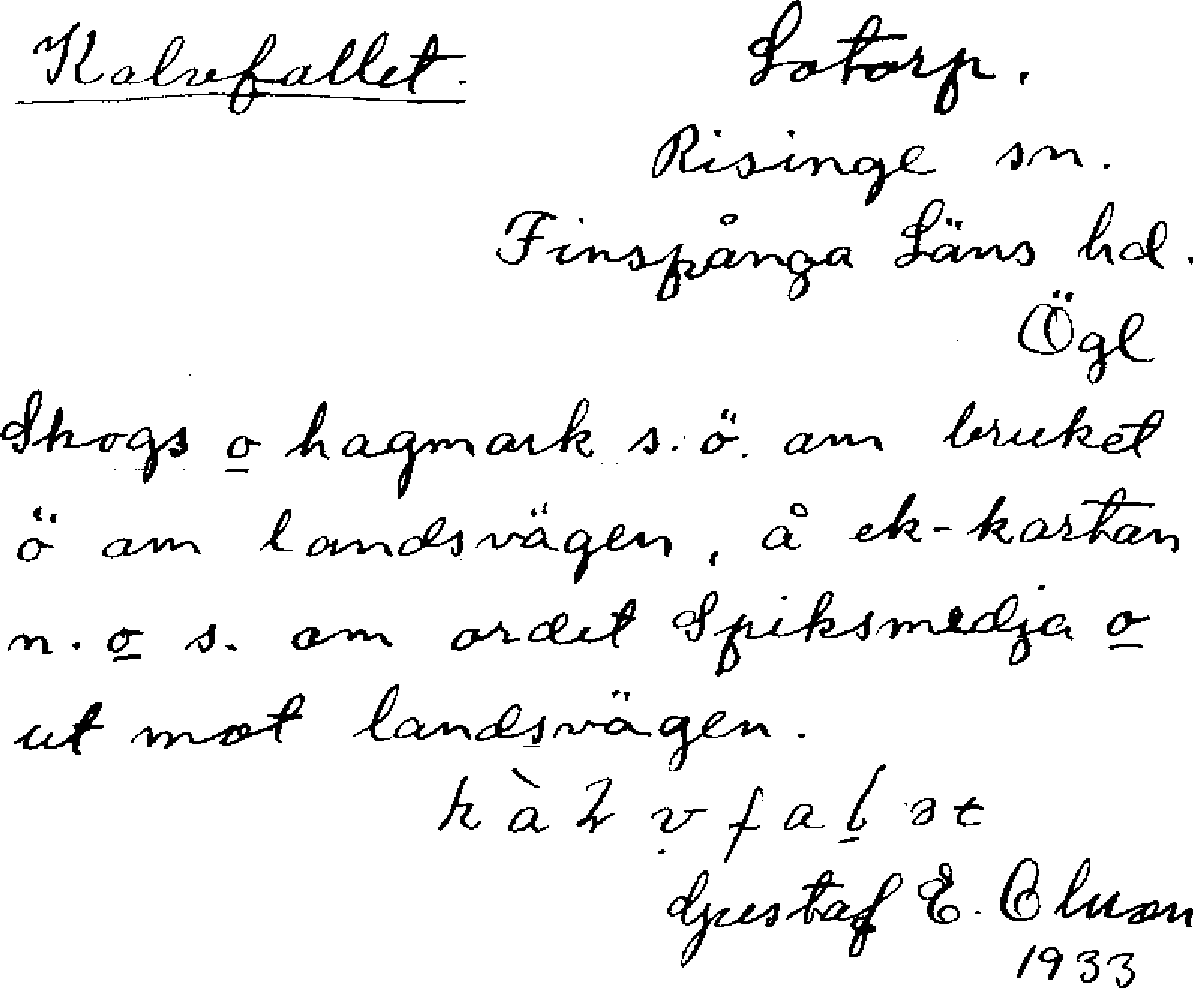 Kalvefallet.
Lotorp.
Risinge sn.
Finspånga Läns hd.
Ögl
Skogs o hagmark s.ö. om bruket
ö om landsvägen, å ek-kartan
n. o s. om ordet Spiksmedja o
ut mot landsvägen.
Gustaf E. Olsson
1933